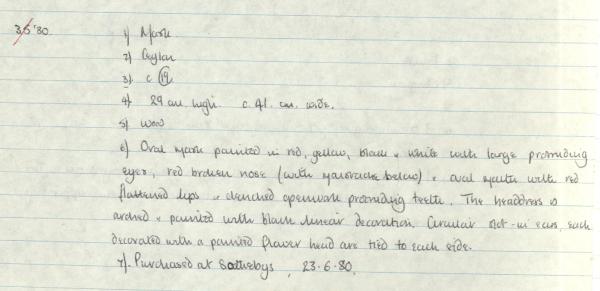 3.5'80. 1) Mask
2) Ceylon
3) C 19
4) 29 cm. high. c. 41. cm. wide.
5) wood
6) Oval mask painted in red, yellow, black & white with large protruding
eyes, red broken nose (with moustache below) & oval mouth with red
flattened lips & clenched openwork protruding teeth. The headdress is
arched & painted with black linear decoration. Circular slot-in ears, each
decorated with a painted flower head are tied to each side.
7). Purchased at Sothebys, 23.6.80.